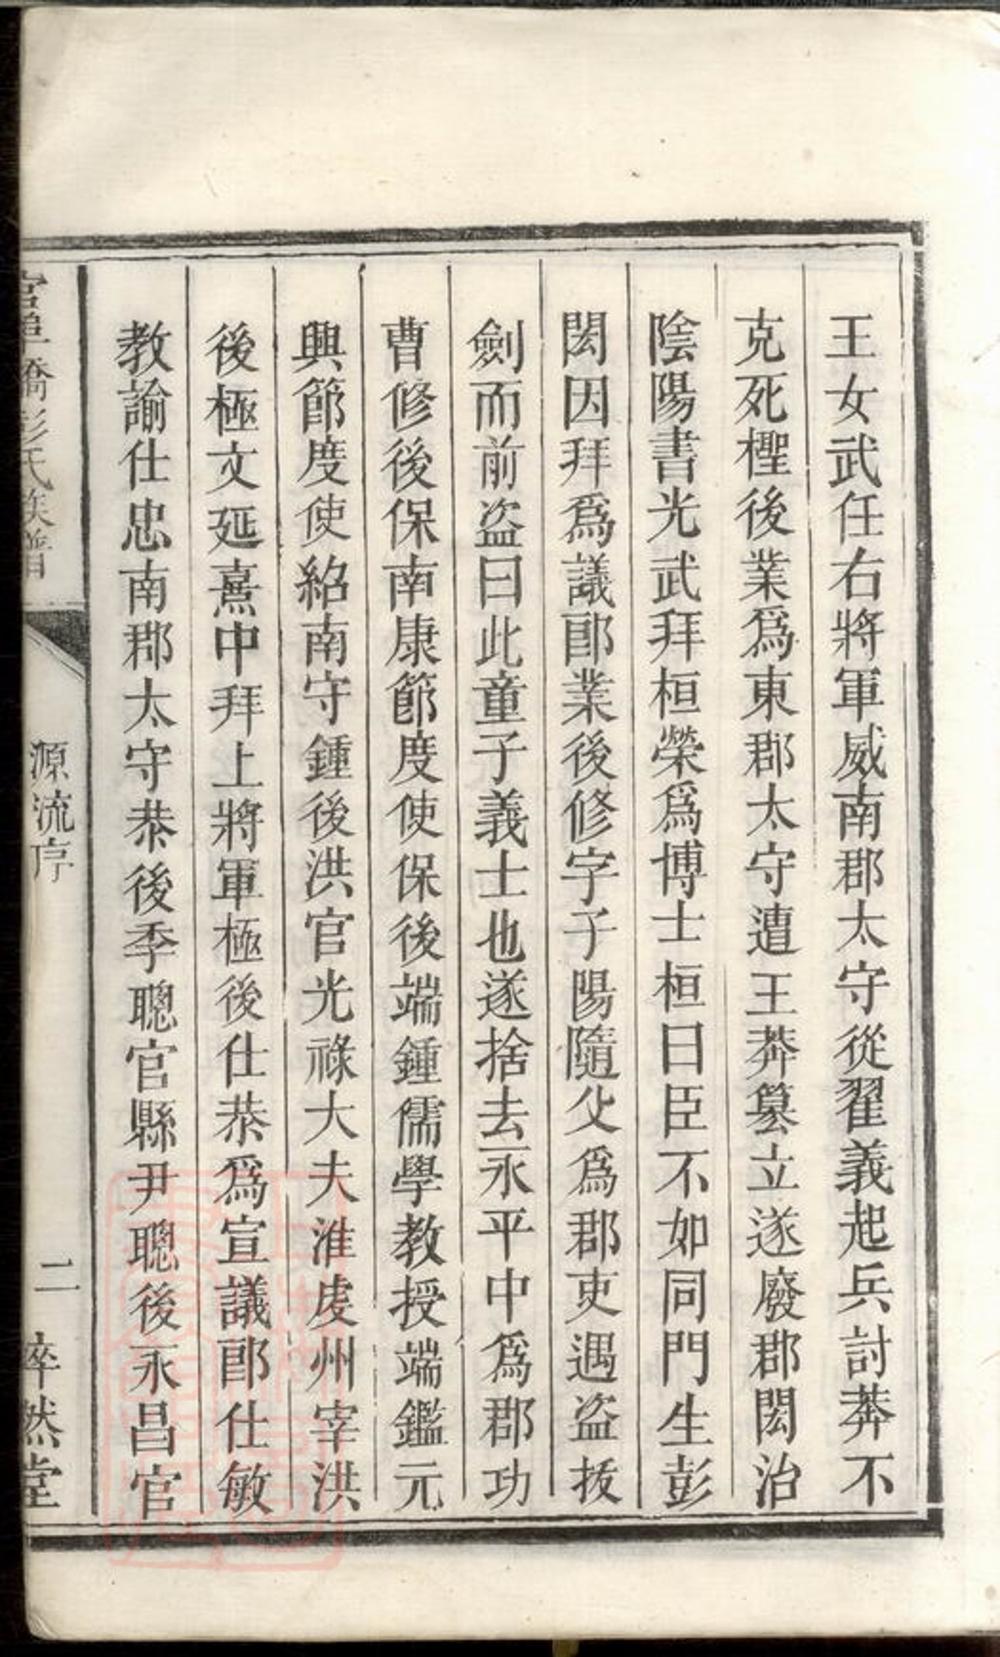 王女武任右將軍威南郡太守從翟義起兵討莽不
克死檉後業爲東郡太守遭王莽篡立遂廢郡閎治
陰陽書光武拜桓榮爲博士桓曰臣不如同門生彭
閎因拜爲議郎業後修字子陽隨父爲郡吏遇盗拔
劍而前盗曰此童子義士也遂捨去永平中爲郡功
曹修後保南康節度使保後端鍾儒學教授端鑑元
興節度使紹南守鍾後洪官光祿大夫淮虔州宰洪
後極文延熹中拜上將軍極後仕恭爲宣議郎仕敏
教諭仕忠南郡太守恭後季聰官縣尹聰後永昌官
橋彭氏族譜
源流序
二